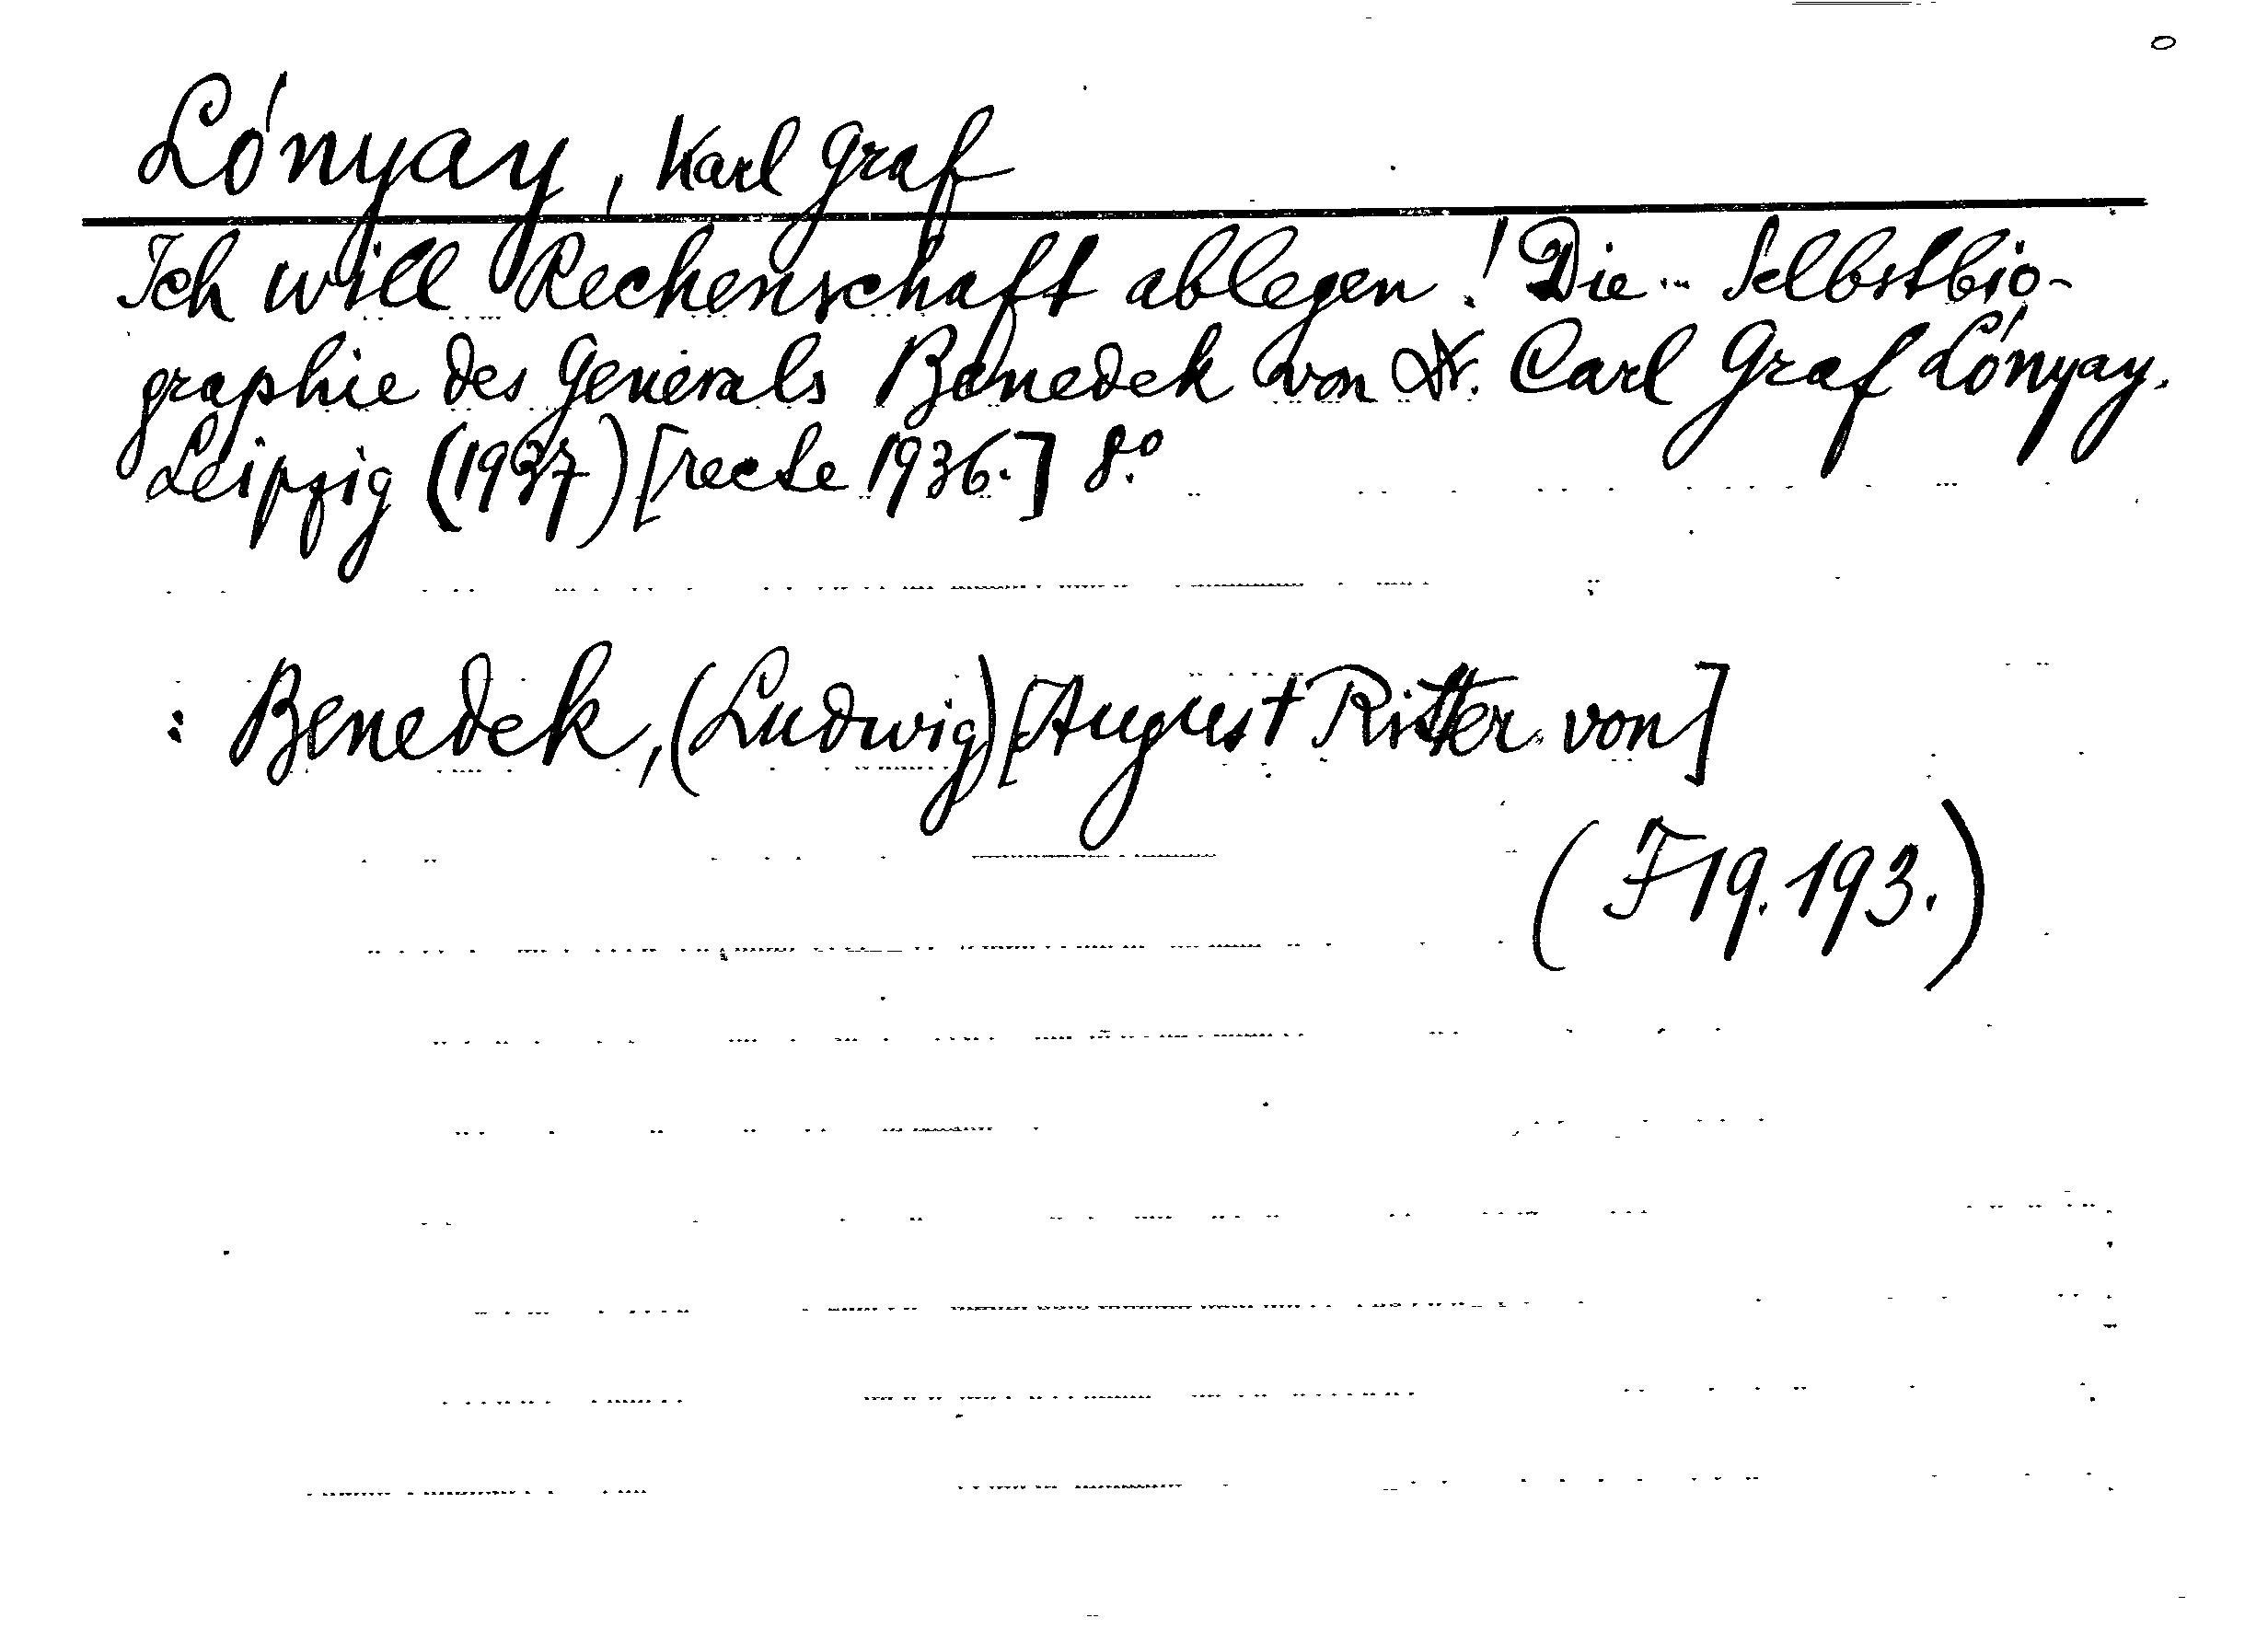 Lónyay, Karl Graf
Ich will Rechenschaft ablegen! Die... Selbstbio-
graphie des Generals Benedek von Dr. Carl Graf Lónyay.
Leipzig (1937) [recte 1936.] 8.°
: Benedek, (Ludwig) [August Ritter von]
(F 19.193.)